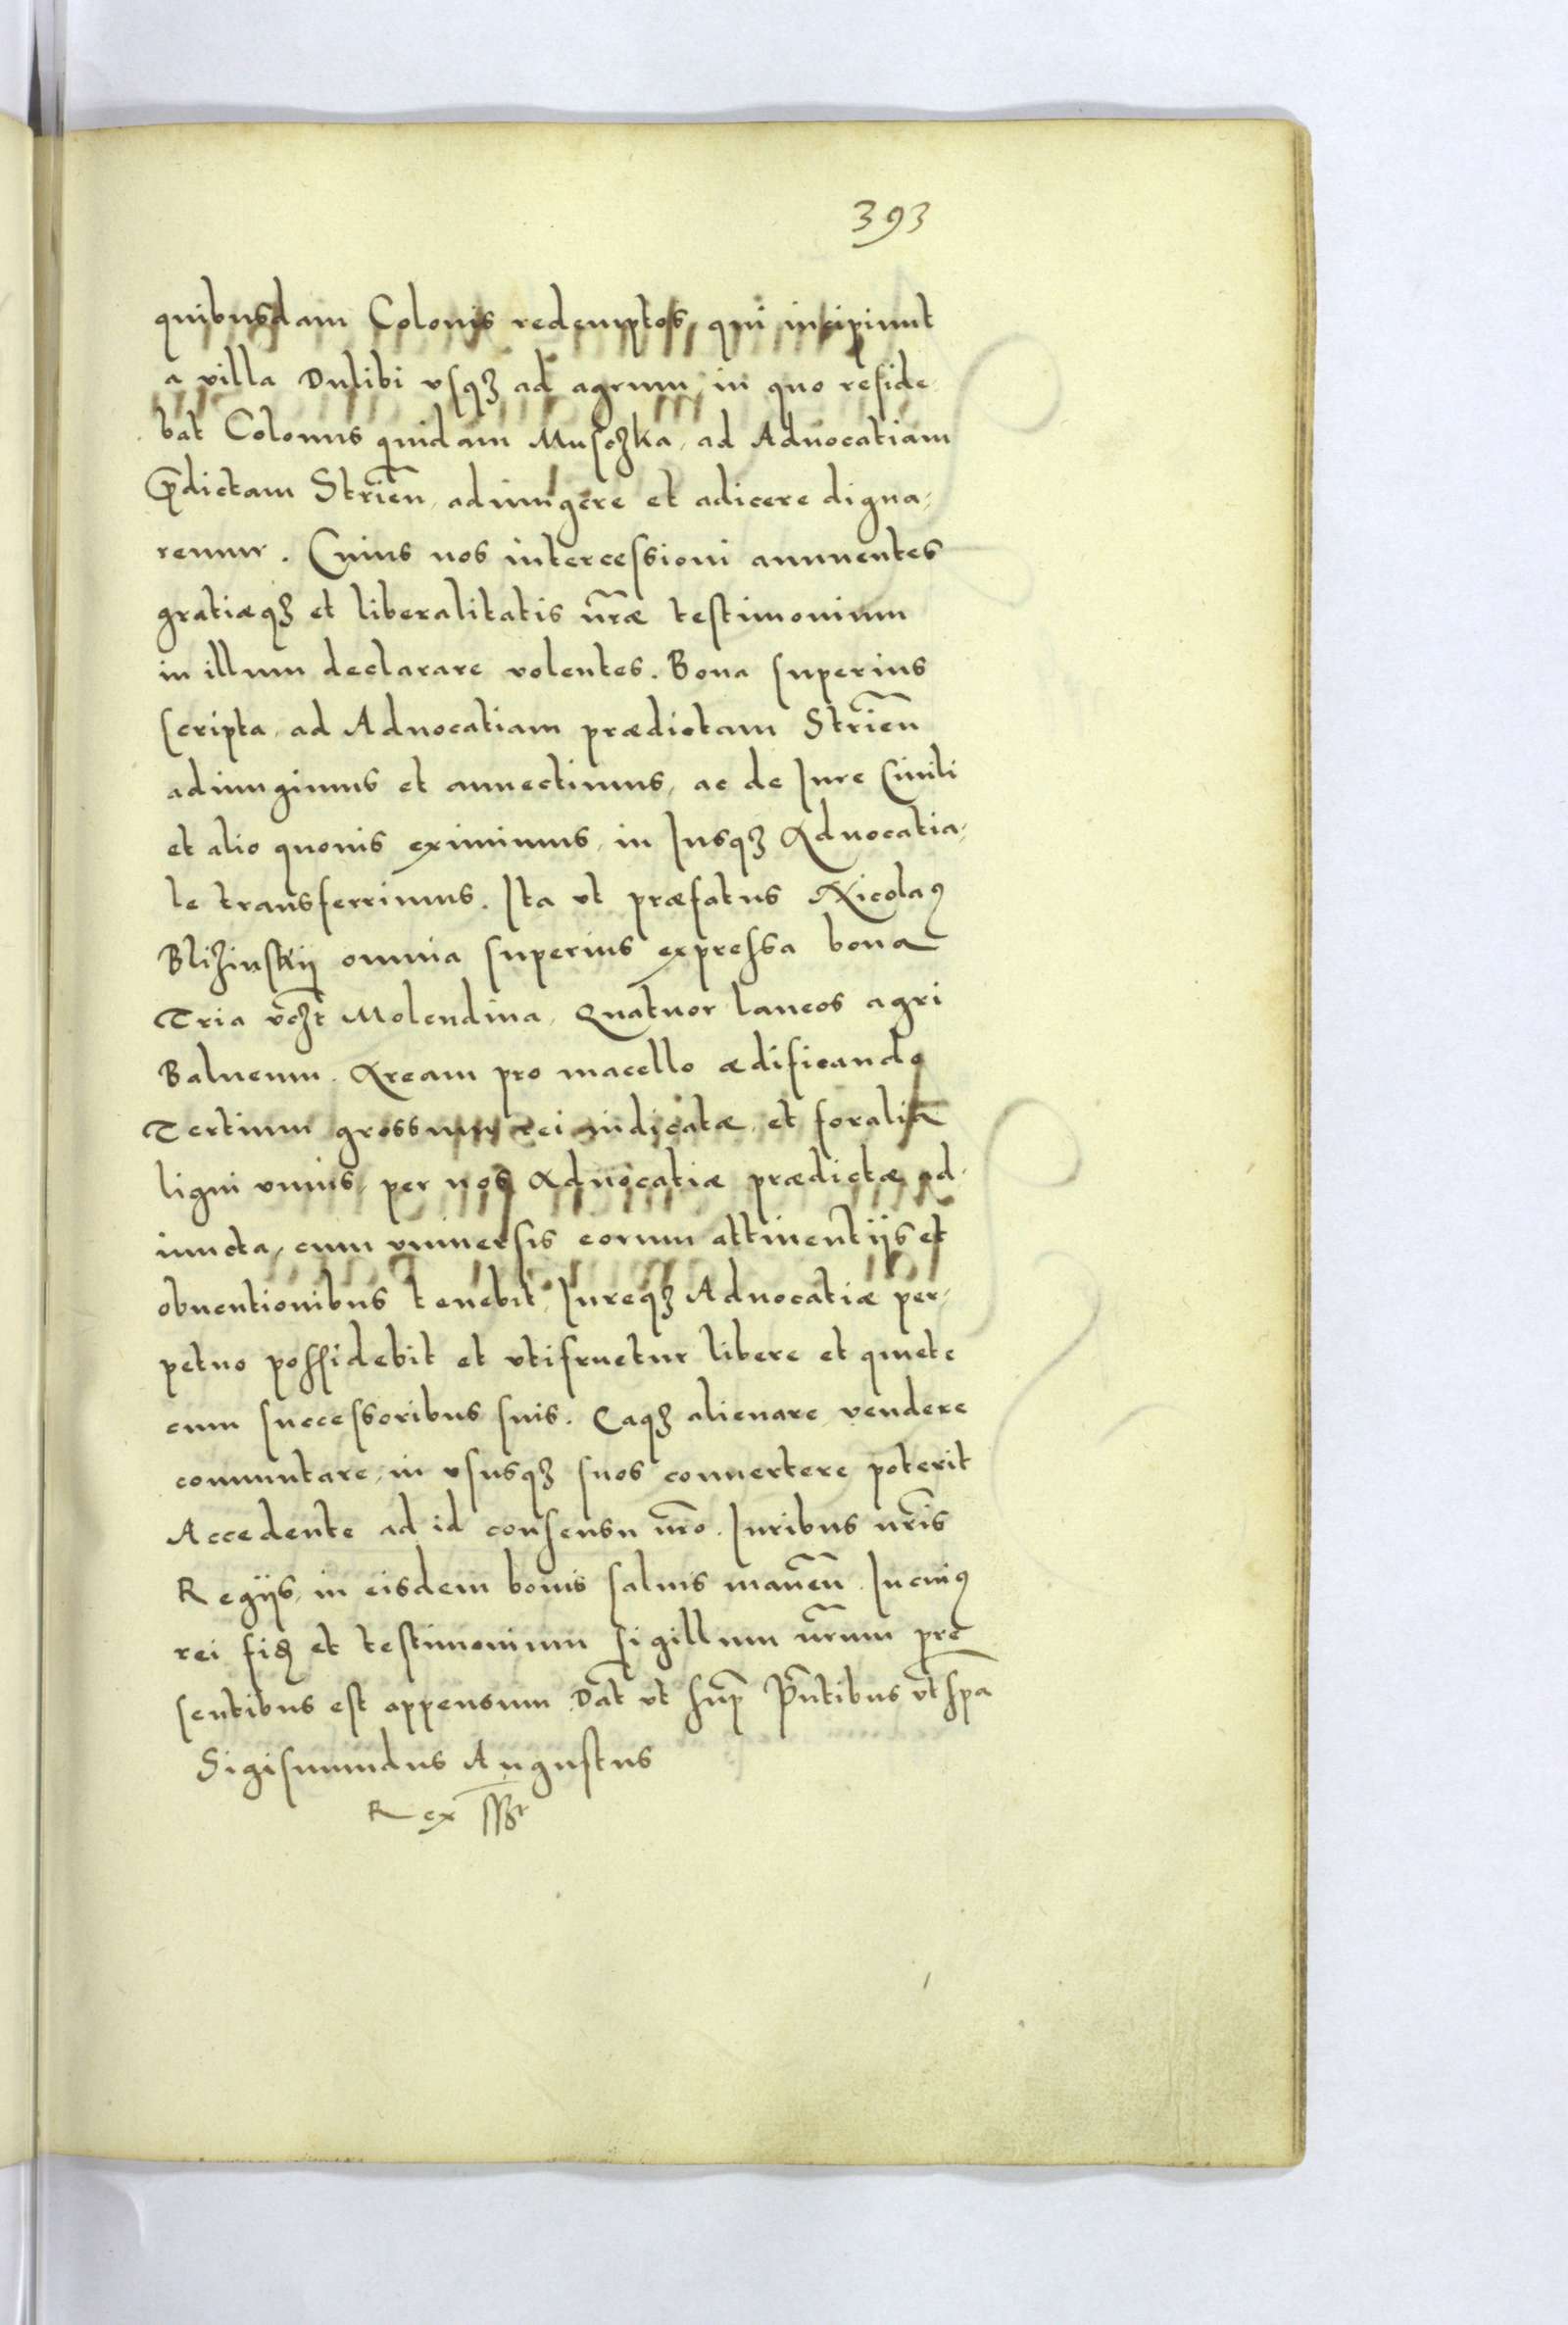 393
quibusdam Colonis redemptos, qui incipiunt
a villa Dulibi vsqꝫ ad agrum, in quo reside
bat Colonus quidam Musczka, ad Aduocatiam
P̄dictam Strien̄, adiungere et adicere digna,
remur. Cuius nos intercessioni annuentes
gratiæqꝫ et liberalitatis nr̄æ testimonium
in illum declarare volentes. Bona superius
scripta, ad Aduocatiam prædictam Strien̄
adiungimus et annectimus, ac de Iure Ciuili
et alio quouis eximimus, in Iusqꝫ Aduocatia,
le transferrimus. Ita vt præfatus Nicolaꝰ
Blizinskij omnia superius expressa bona
Tria vꝫ Molendina, Quatuor laneos agri
Balneum. Aream pro macello ædificando
Tertium grossum rei iudicatæ, et foralia
ligni vnius, per nos Aduocatiæ prædictæ ad,
iuncta, cum vniuersis eorum attinentijs et
obuentionibus tenebit, Iureqꝫ Aduocatiæ per,
petuo possidebit et vtifruetur libere et quiete
cum successoribus suis. Eaqꝫ alienare vendere
commutare, in vsusqꝫ suos conuertere poterit
Accedente ad id consensu nr̄o. Iuribus nr̄is
Regijs, in eisdem bonis saluis manen̄. In cuiꝰ
rei fiꝫ et testimonium sigillum nr̄um pre
sentibus est appensum Dat̄ vt sup̄ Pn̄tibus vt sp̄a
Sigismundus Augustus
Rex